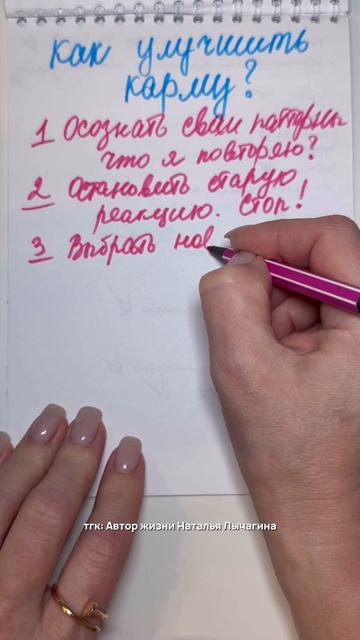 Как улучшить
карму?
1 Осознать свои паттерны
что я повторяю?
2 Остановить старую
реакцию. Стоп!
3 Выбрать нов
тгк: Автор жизни Наталья Лычагина